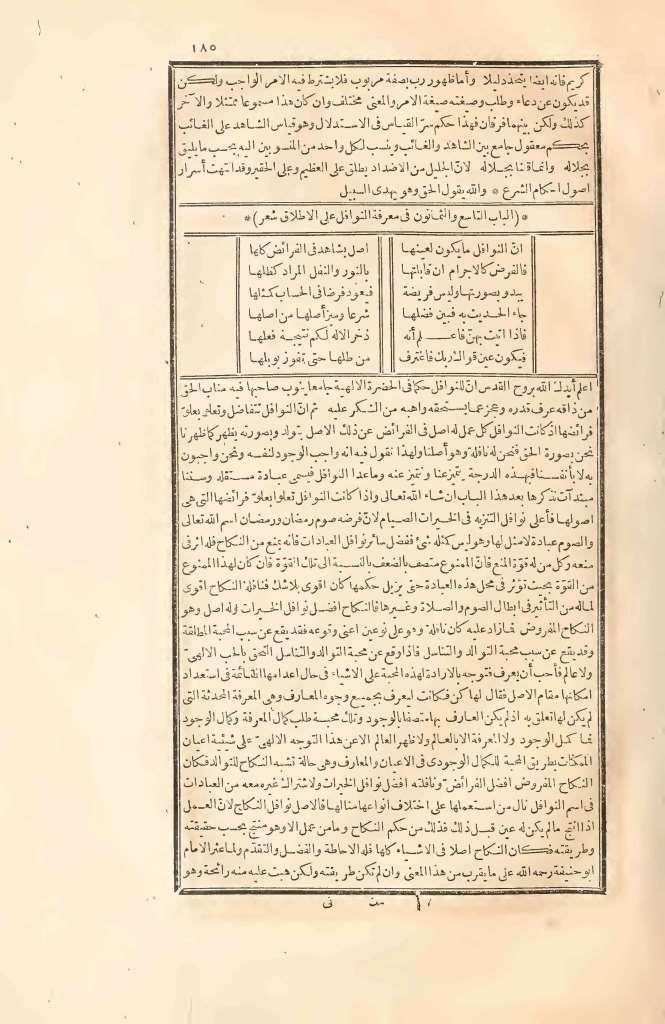 ١٨٥
كريم فانه ايضا يتخذ دليلا وأما ظهور رب بصفة مربوب فلا يشترط فيه الامر الواجب ولكن
قد يكون عن دعاء وطلب وصيغته صيغة الامر والمعنى مختلف وان كان هذا مسموعا ممتثلا والآخر
كذلك ولكن بينهما فرقان فهذا حكم سرّ القياس فى الاستدلال وهو قياس الشاهد على الغائب
بحكم معقول جامع بين الشاهد والغائب وينسب لكل واحد من المنسوبين اليه بحسب ما يليق
بجلاله وانما قلنا بجلاله لانّ الجليل من الاضداد يطلق على العظيم وعلى الحقير وقد انتهت أسرار
اصول احكام الشرع * والله يقول الحق وهو يهدى السبيل
*(الباب التاسع والثمانون فى معرفة النوافل على الاطلاق شعر)*
انّ النوافل ما يكون لعينها اصل يشاهد فى الفرائض كلها
فالفرض كالاجرام ان قابلتها بالنور والنفل المراد كظلها
يبدو بصورتها وليس فريضة فيعود فرضا فى الحساب كمثلها
جاء الحديث به فبين فضلها شرعا وميز أصلها من اصلها
فاذا اتيت بهنّ فاعلم أنه ذخر الاله لكم نتيجة فعلها
فيكون عين قوالـ ربك فاغترف من طلها حتى تفوز بوبلها
اعلم أيدك الله بروح القدس انّ للنوافل حكما فى الحضرة الالهية جامعا ينوب صاحبها فيه مناب الحق
من ذاقه عرف قدره وعجز عما يستحقه واهبه من الشكر عليه ثم انّ النوافل تتفاضل وتعلو بعلوّ
فرائضها اذ كانت النوافل كل عمل له اصل فى الفرائض عن ذلك الاصل يتولد وبصورته يظهر كما ظهرنا
نحن بصورة الحق فنحن له نافلة وهو أصلنا ولهذا نقول فيه انه واجب الوجود لنفسه ونحن واجبون
به لا بأنفسنا فبهذه الدرجة يتميز عنا ونتميز عنه وما عدا النوافل فيسمى عبادة مستقلة وسننا
مبتدآت نذكرها بعد هذا الباب ان شاء الله تعالى واذا كانت النوافل تعلو بعلوّ فرائضها التى هى
اصولها فأعلى نوافل التنزيه فى الخيرات الصيام لانّ فرضه صوم رمضان ورمضان اسم الله تعالى
والصوم عبادة لا مثل لها وهو ليس كمثله شئ ففضل سائر نوافل العبادات فانه يمنع من النكاح فله اثر فى
منعه وكل من له قوّة المنع فانّ الممنوع متصف بالضعف بالنسبة الى تلك القوّة فان كان لهذا الممنوع
من القوّة بحيث تؤثر فى محل هذه العبادة حتى يزيل حكمها كان اقوى بلا شك فنافلة النكاح اقوى
لما له من التأثير فى ابطال الصوم والصلاة وغيرها فالنكاح افضل نوافل الخيرات وله اصل وهو
النكاح المفروض فما زاد عليه كان نافلة وهو على نوعين اعنى وقوعه فقد يقع عن سبب المحبة المطلقة
وقد يقع عن سبب محبة التوالد والتناسل فاذا وقع عن محبة التوالد والتناسل التحق بالحب الالهىّ
ولا عالم فأحب أن يعرف فتوجه بالارادة لهذه المحبة على الاشياء فى حال اعدامها القائمة فى استعداد
امكانها مقام الاصل فقال لها كن فكانت ليعرف بجميع وجوه المعارف وهى المعرفة المحدثة التى
لم يكن لها تعلق به اذ لم يكن العارف بها متصفا بالوجود وتلك محبة طلب كمال المعرفة وكمال الوجود
فما كمل الوجود ولا المعرفة الا بالعالم ولا ظهر العالم الا عن هذا التوجه الالهىّ على شيئية اعيان
الممكنات بطريق المحبة للكمال الوجودى فى الاعيان والمعارف وهى حالة تشبه النكاح للتوالد فكان
النكاح المفروض افضل الفرائض ونافلته افضل نوافل الخيرات ولاشتراك غيره معه من العبادات
فى اسم النوافل نال من استعملها على اختلاف انواعها منالها فالاصل نوافل النكاح لانّ العمل
اذا انتج ما لم يكن له عين قبل ذلك فذلك من حكم النكاح وما من عمل الا وهو منتج بحسب حقيقته
وطريقته فكان النكاح اصلا فى الاشياء كلها فله الاحاطة والفضل والتقدّم ولما عثر الامام
ابو حنيفة رحمه الله على ما يقرب من هذا المعنى وان لم تكن طريقته ولكن هبت عليه منه رائحة وهو